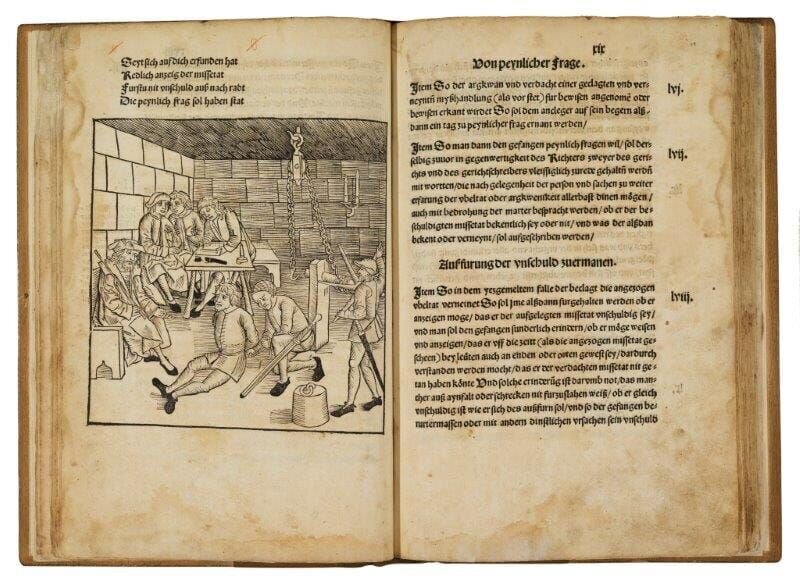 Seyt sich auf dich erfunden hat
Redlich anzeig der missetat
Furstu nit vnschuld auß nach radt
Die peynlich frag sol haben stat
xix
Von peynlicher Frage.
Item So der argkwan vnd verdacht einer geclagten vnd ver-
neynten myßhandlung (als vor stet) fur bewisen angenomē oder
bewisen erkant wirdet So sol dem ancleger auf sein begern alß-
dann ein tag zu peynlicher frag ernant werden/
lvj.
Item So man dann den gefangen peynlich fragen wil/ sol der-
selbig zuuor in gegenwertigkeit des Richters zweyer des geri-
chts vnd des gerichtschreibers vleissiglich zu rede gehaltñ werdñ
mit wortten/ die nach gelegenheit der person vnd sachen zu weiter
erfarung der vbeltat oder argkwenikeit allerbast dinen mögen/
auch mit bedrohung der marter bespracht werden/ ob er der be-
schuldigten missetat bekentlich sey oder nit/ vnd was der alßdan
bekent oder verneynt/ sol aufgeschriben werden/
lvij.
Auffurung der vnschuld zuermanen.
Item So in dem yezgemeltem falle der beclagt die angezogen
vbeltat verneinet So sol jme alßdann furgehalten werden ob er
anzeigen moge/ das er der aufgelegten missetat vnschuldig sey/
vnd man sol den gefangen sunderlich erindern/ ob er möge weisen
vnd anzeigen/ das er vff die zeitt (als die angezogen missetat ge-
scheen) bey leüten auch an enden oder orten gewest sey/ dardurch
verstanden werden mocht/ das er der verdachten missetat nit ge-
tan haben könte Vnd solche erinderūg ist darvmb not/ das man-
cher auß aynfalt oder schrecken nit furzuslahen weiß/ ob er gleich
vnschuldig ist wie er sich des außfurn sol/ vnd so der gefangen be-
rurtermassen oder mit andern dinstlichen vrsachen sein vnschuld
lviij.